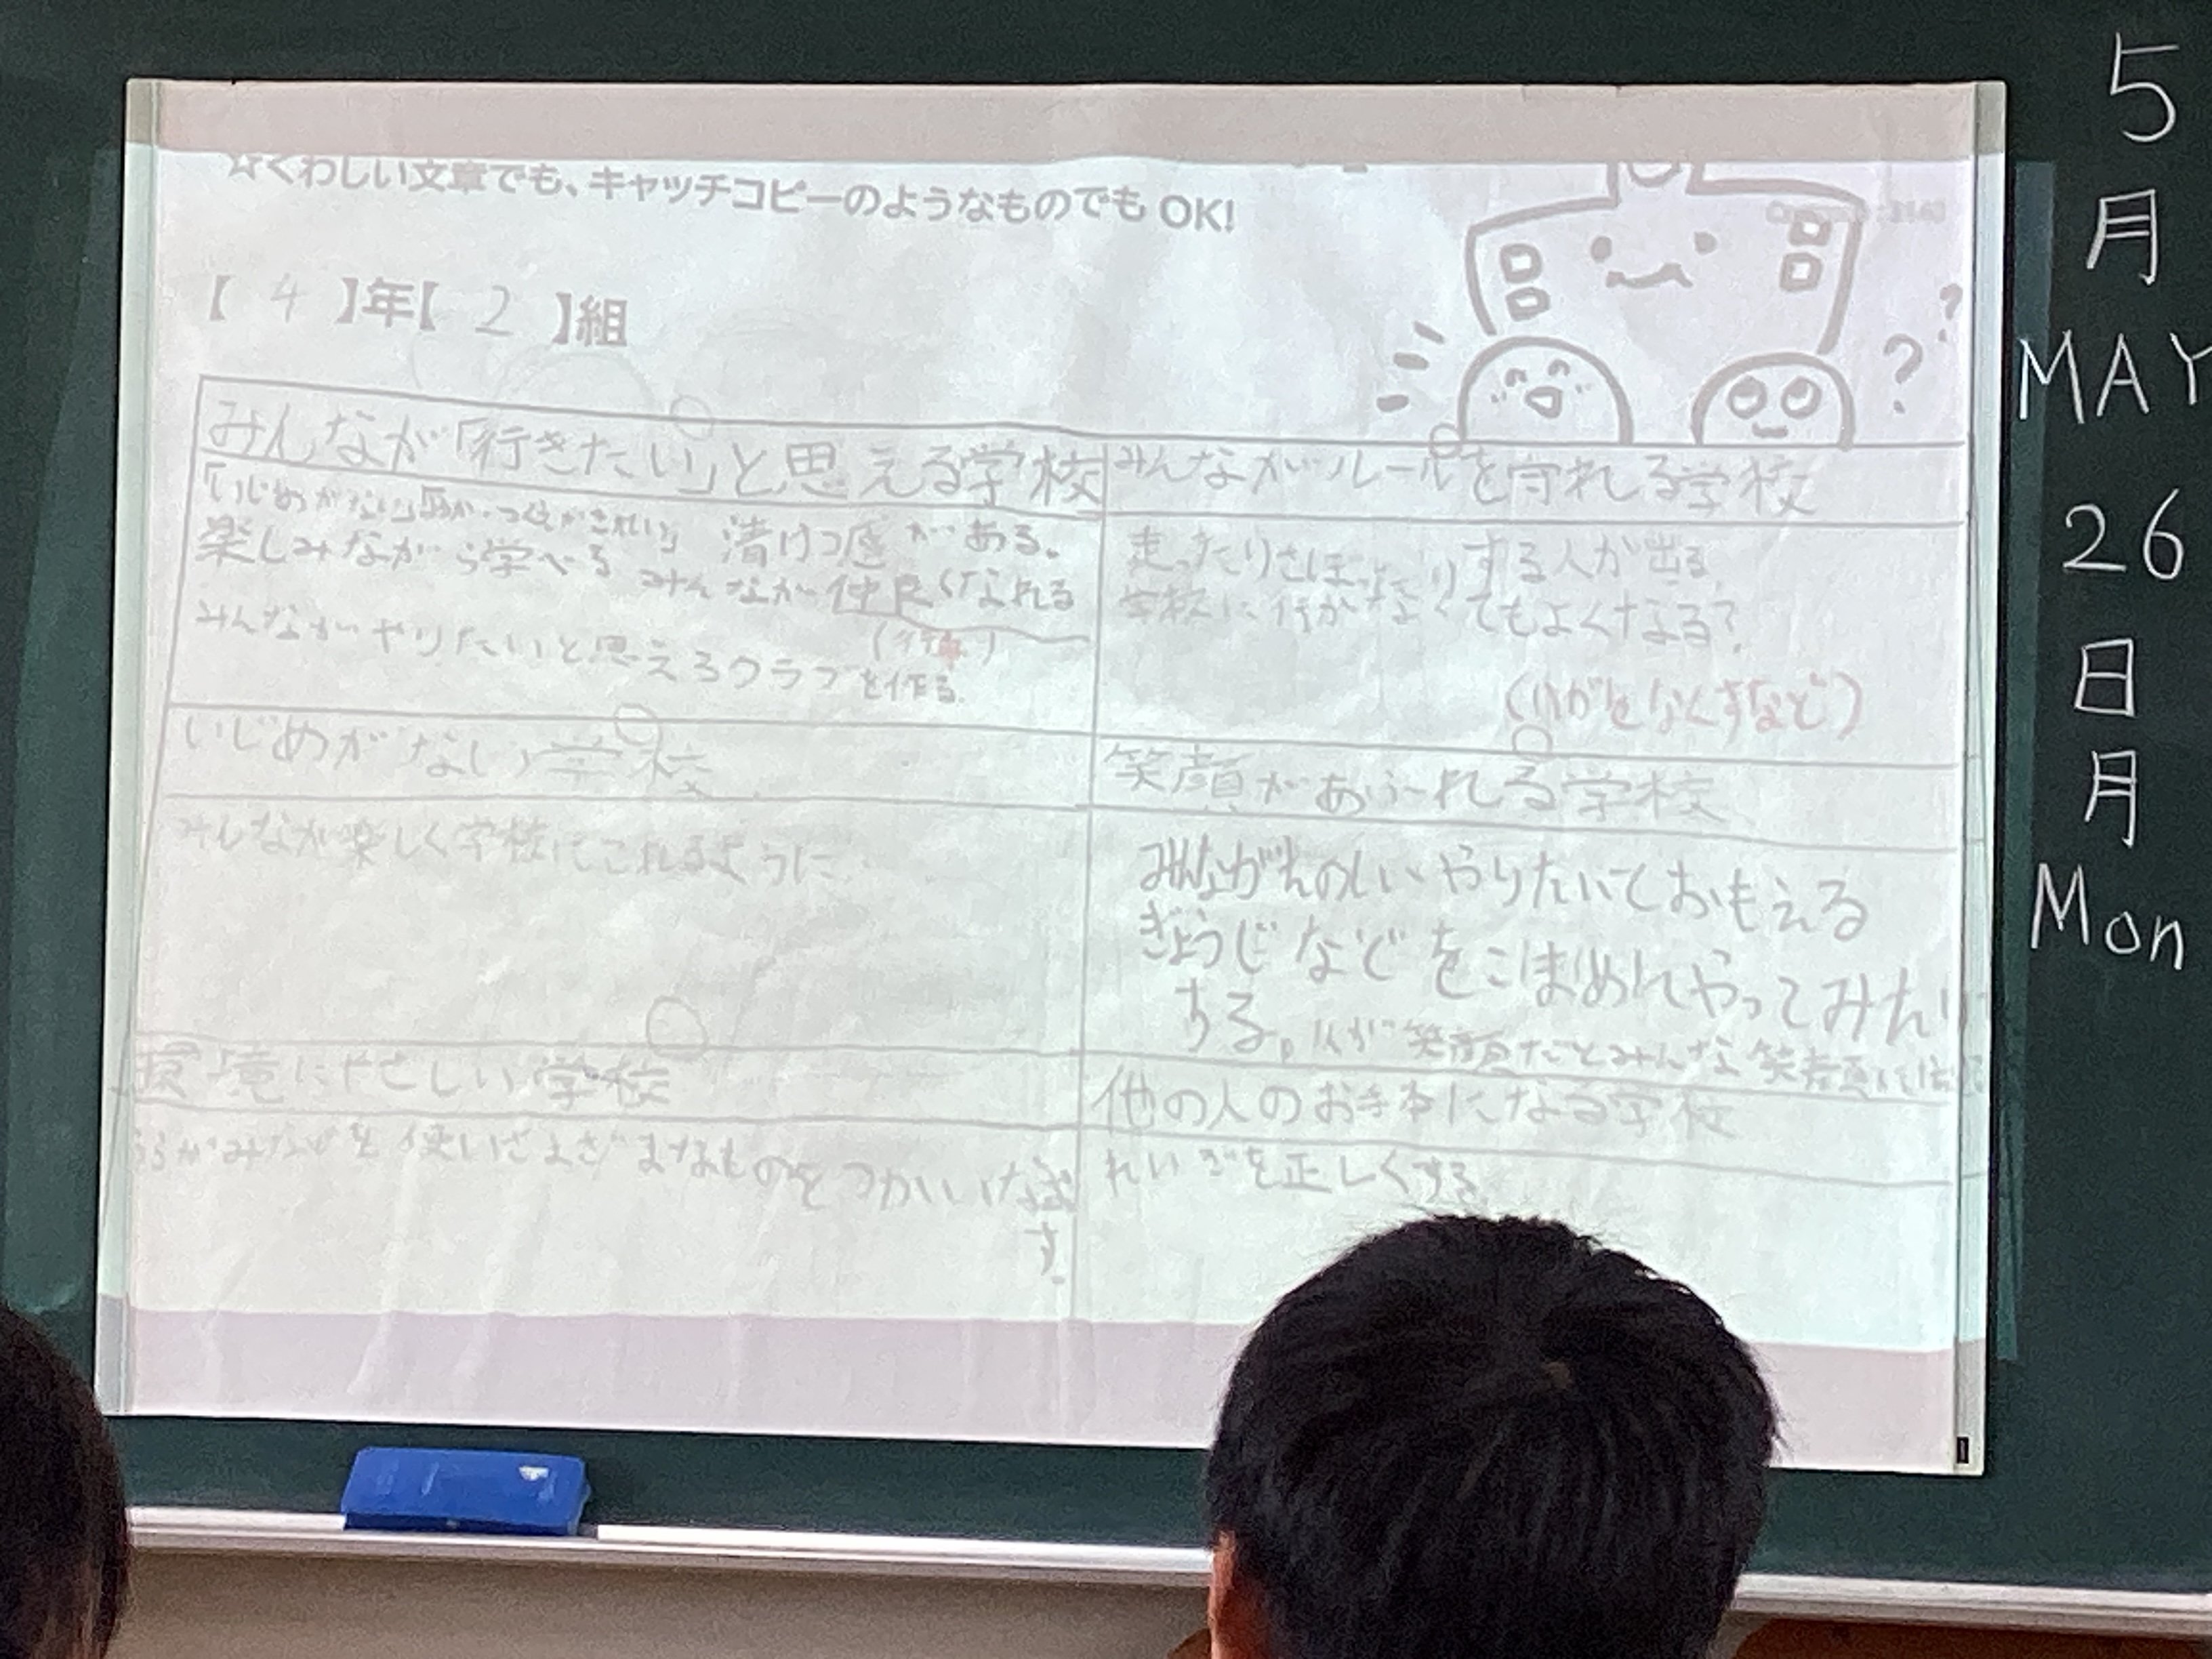 ☆くわしい文章でも、キャッチコピーのようなものでも OK!
【 4 】年【 2 】組
みんなが「行きたい」と思える学校
「いじめがない」 がきれい」 清けつ感がある。
楽しみながら学べる みんなが仲良くなれる
みんながやりたいと思えるクラブを作る。
みんながルールを守れる学校
走ったりさぼったりする人が出る
学校に行かなくてもよくなる?
いじめがない学校
みんなが楽しく学校にこれるように
笑顔があふれる学校
みんながたのしいやりたいておもえる
ぎょうじなどをこまめにやってみたり
する。 笑顔だとみんな笑顔に
環境にやさしい学校
を使いさまざまなものをつかいなお
す。
他の人のお手本になる学校
れいぎを正しくする
5
月
MAY
26
日
月
Mon
? ?